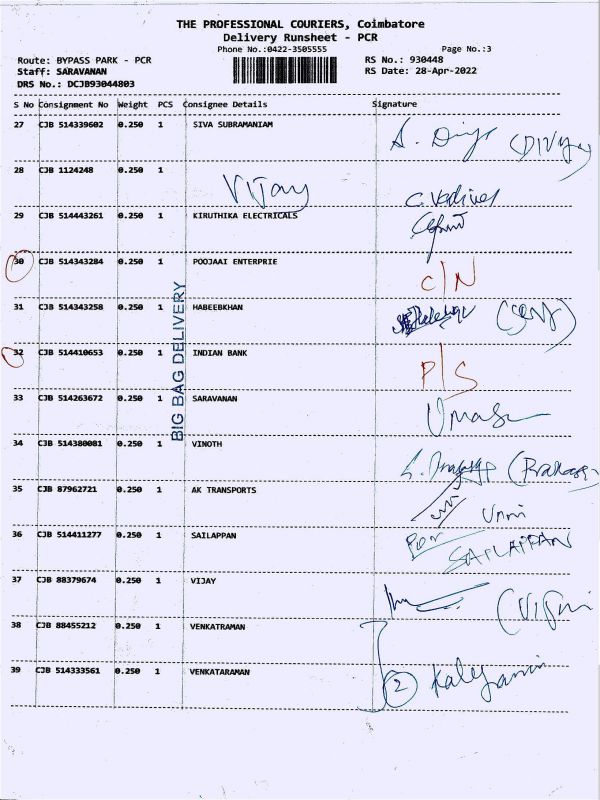 THE PROFESSIONAL COURIERS, Coimbatore
Delivery Runsheet - PCR
Phone No.:0422-3505555
Page No.:3
Route: BYPASS PARK - PCR
RS No.: 930448
Staff: SARAVANAN
RS Date: 28-Apr-2022
DRS No.: DCJB93044803
S No Consignment No Weight PCS Consignee Details Signature
27 CJB 514339602 0.250 1 SIVA SUBRAMANIAM
28 CJB 1124248 0.250 1 Vijay
29 CJB 514443261 0.250 1 KIRUTHIKA ELECTRICALS
30 CJB 514343284 0.250 1 POOJAAI ENTERPRIE C/N
31 CJB 514343258 0.250 1 HABEEBKHAN
32 CJB 514410653 0.250 1 INDIAN BANK P/S
33 CJB 514263672 0.250 1 SARAVANAN
34 CJB 514380081 0.250 1 VINOTH
35 CJB 87962721 0.250 1 AK TRANSPORTS
36 CJB 514411277 0.250 1 SAILAPPAN SAILAPPAN
37 CJB 88379674 0.250 1 VIJAY
38 CJB 88455212 0.250 1 VENKATRAMAN
39 CJB 514333561 0.250 1 VENKATARAMAN 2 Kalyani
BIG BAG DELIVERY